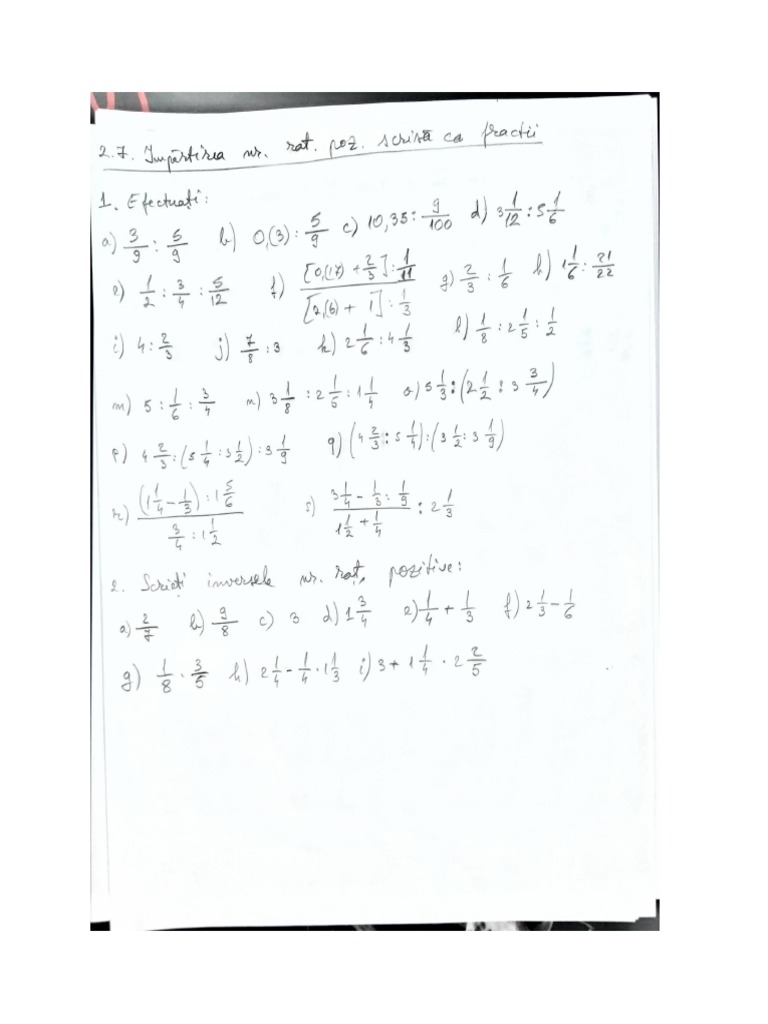 2.7. Împărțirea nr. rat. poz. scrisă ca fracții
1. Efectuați:
a) 3/9 : 5/9 b) 0,(3) : 5/9 c) 10,35 : 9/100 d) 3 1/12 : 5 1/6
e) 1/2 : 3/4 : 5/12 f) ([0,(17) + 2/3] : 1/11) / ([2,(6) + 1] : 1/3) g) 2/3 : 1/6 h) 1 1/6 : 21/22
i) 4 : 2/3 j) 7/8 : 3 k) 2 1/6 : 4 1/3 l) 1/8 : 2 1/5 : 1/2
m) 5 : 1/6 : 3/4 n) 3 1/8 : 2 1/5 : 1 1/4 o) 5 1/3 : (2 1/2 : 3 3/4)
p) 4 2/3 : (5 1/4 : 3 1/2) : 3 1/9 q) (4 2/3 : 5 1/4) : (3 1/2 : 3 1/9)
r) ((1 1/4 - 1/3) : 1 5/6) / (3/4 : 1 1/2) s) (3 1/4 - 1/3 : 1/9) / (1 1/2 + 1/4) : 2 1/3
2. Scrieți inversele nr. raț. pozitive:
a) 2/7 b) 9/8 c) 3 d) 1 3/4 e) 1/4 + 1/3 f) 2 1/3 - 1/6
g) 1/8 · 3/5 h) 2 1/4 - 1/4 · 1 1/3 i) 3 + 1 1/4 · 2 2/5